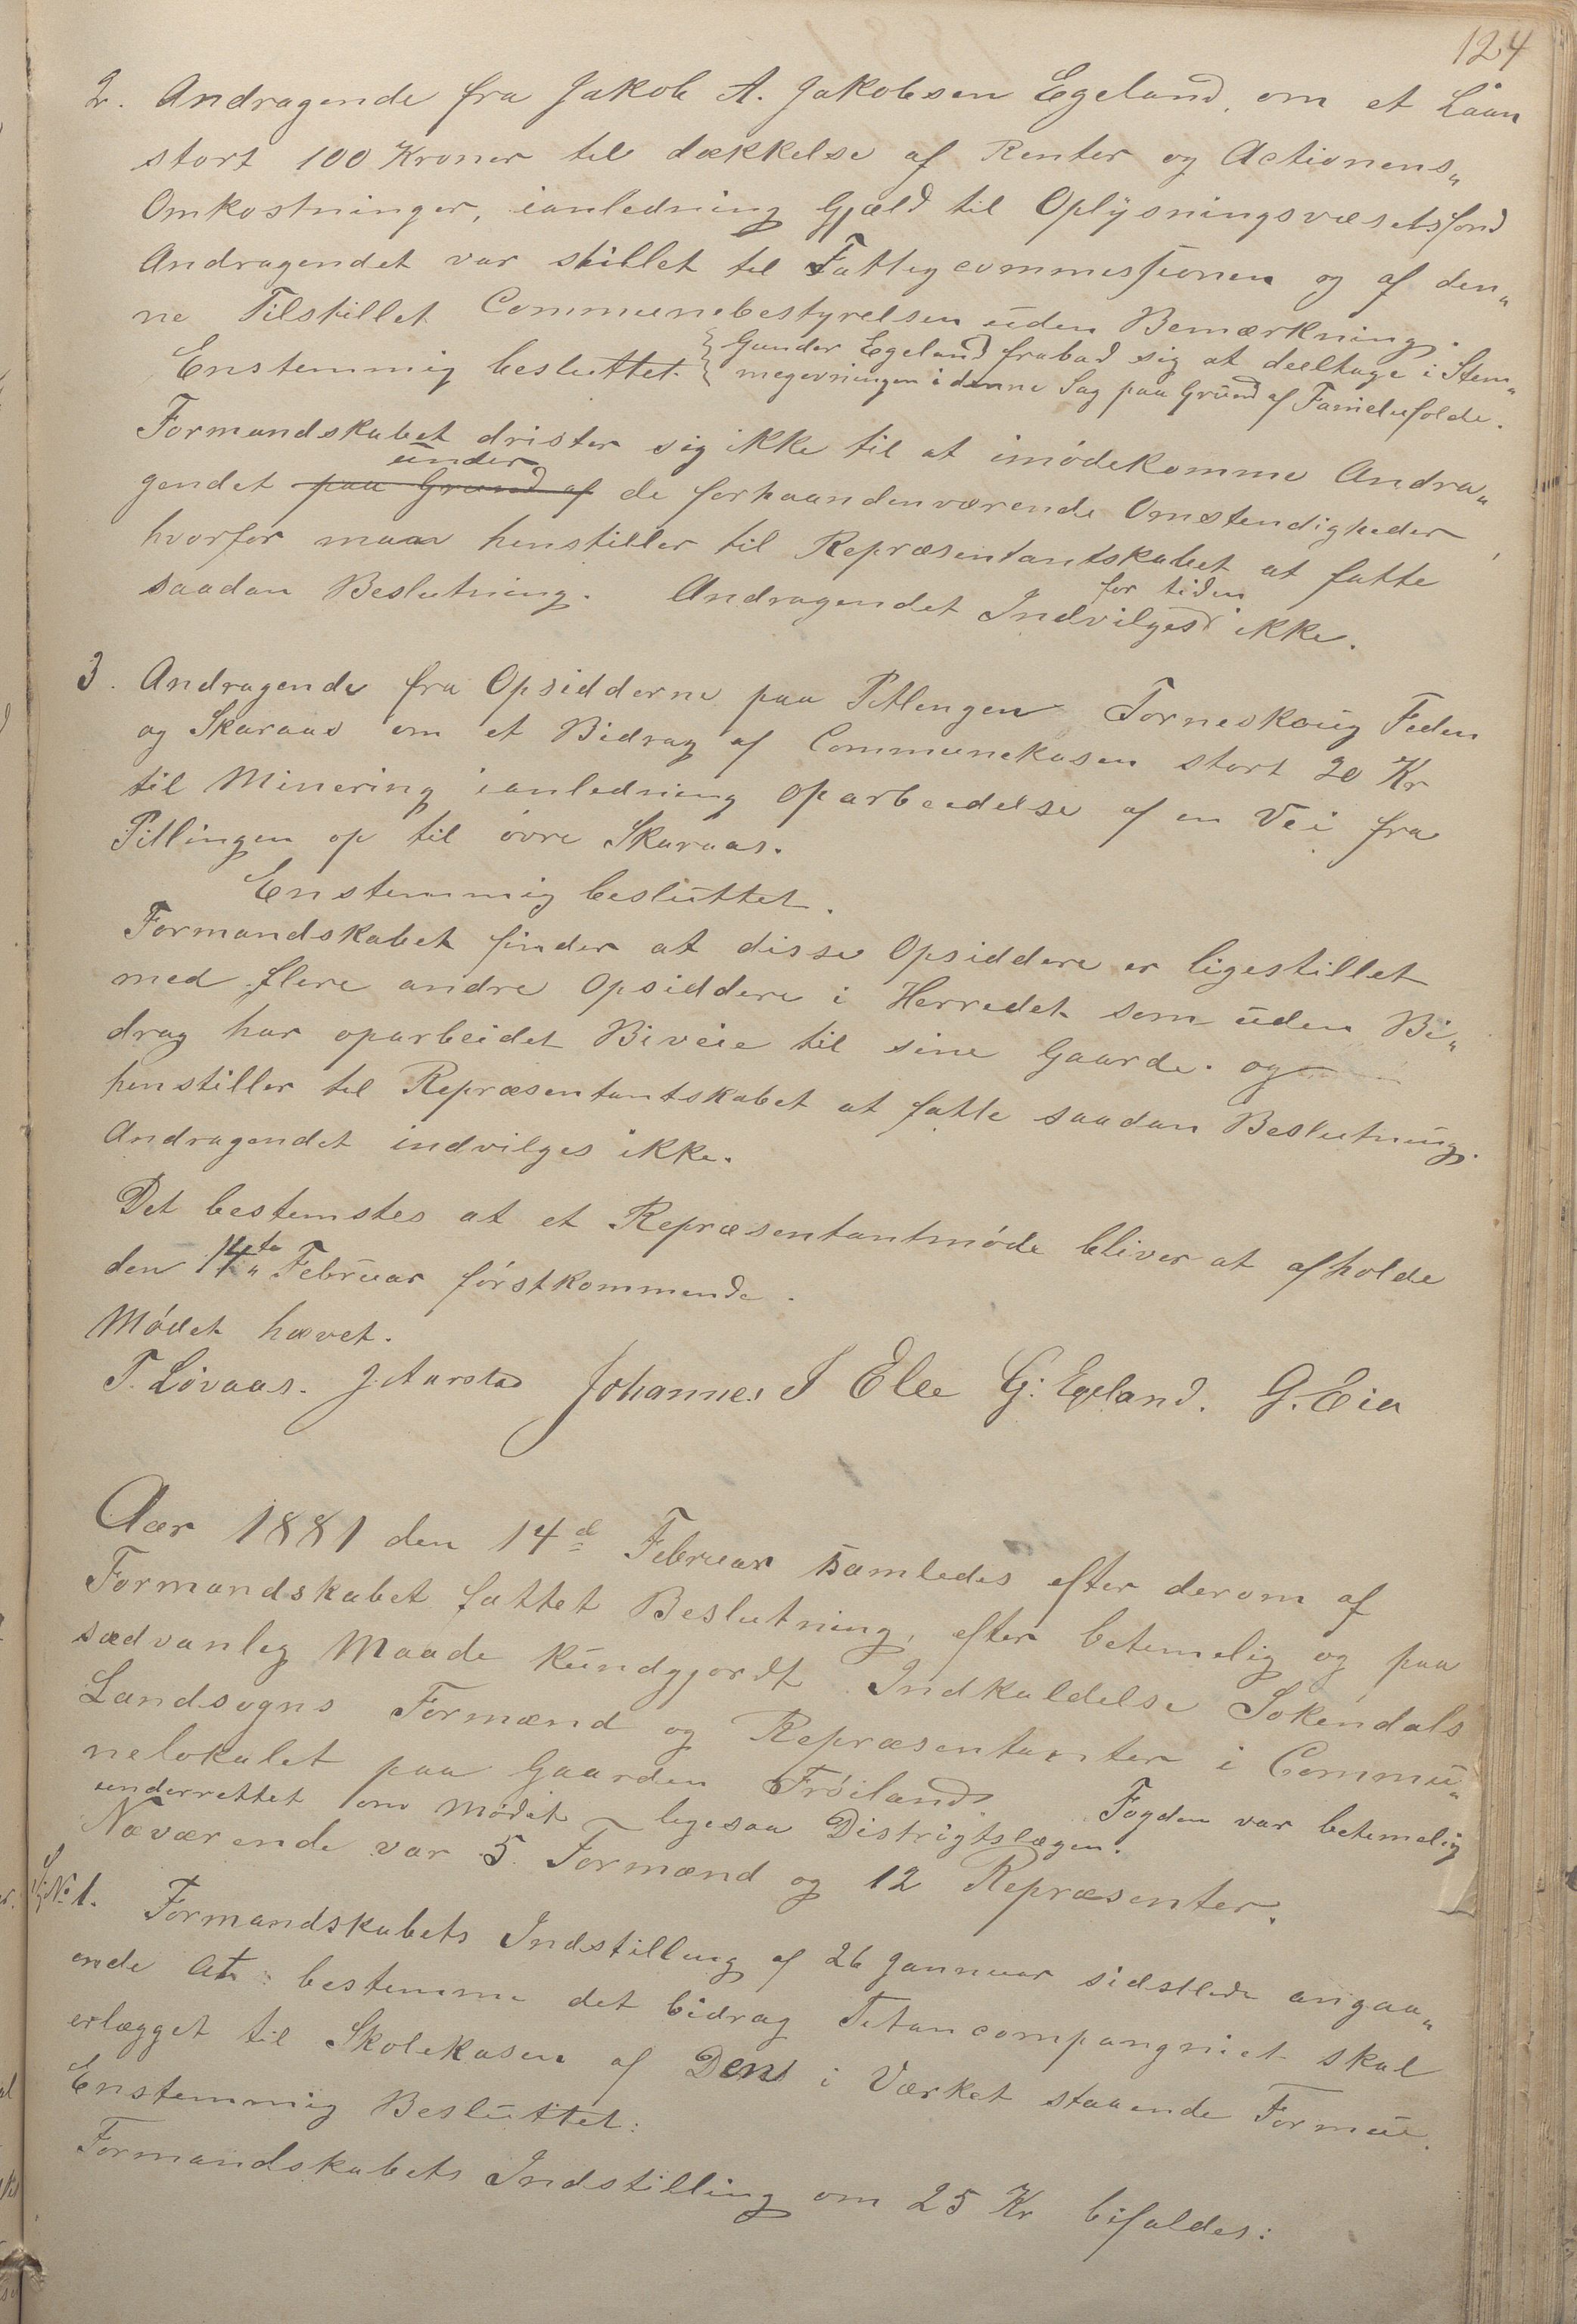 124
2. Andragende fra Jakob A. Jakobsen Egeland, om et Låan
stort 100 Kroner til dækkelse af Renter og Actionens„
Omkostninger, ianledning Gjæld til Oplysningsvæsetsfond
Andragendet var stillet til Fattigcommissionen og af den„
ne Tilstillet Communebestyrelsen uden Bemærkning.
Enstemmig besluttet. { Gunder Egeland frabad sig at deeltage i Stem„
megevningen i denne Sag paa Grund af Familiefolde.
Formandskabet drister sig ikke til at imødekomme Andra„
under
gendet paa Grund af de forhaandenværende Omstendigheder,
hvorfor man henstiller til Repræsentantskabet at fatte
saadan Beslutning. Andragendet Indvilges for tiden ikke.
3. Andragende fra Opsidderne paa Pitlengen Torneskoug Feden
og Skaraas om et Bidrag af Communekasen stort 20 Kr
til Minering ianledning oparbeidelse af en Vei fra
Pitlingen op til øvre Skaraas.
Enstemmig besluttet.
Formandskabet finder at disse Opsiddere er ligestillet
med flere andre Opsiddere i Herredet som uden Bi„
drag har oparbeidet Biveie til sine Gaarde. og
henstiller til Repræsentantskabet at fatte saadan Beslutning.
Andragendet indvilges ikke.
Det bestemstes at et Repræsentantmøde bliver at afholde
den 14de Februar førstkommende.
Mødet hævet.
T. Løvaas. J. Aarstad Johannes J Elle G: Egeland. G. Eia
Aar 1881 den 14d Februar samledes efter derom af
Formandskabet fattet Beslutning, efter betemelig og paa
sædvanlig Maade kundgjordt Indkaldelse Sokendals
Landsogns Formænd og Repræsentanter i Commu„
nelokalet paa Gaarden Frøiland. Fogden var betemelig
underrettet om Mødet ligesaa Distrigtslægen.
Næværende var 5 Formænd og 12 Repræsenter.
No 1. Formandskabets Indstilling af 26 Jannuar sidstlede angaa„
ende At bestemme det bidrag Titancompangniet skal
erlægget til Skolekasen af Den i Værket staaende Formue.
Enstemmig Besluttet:
Formandskabets Indstilling om 25 Kr bifaldes: